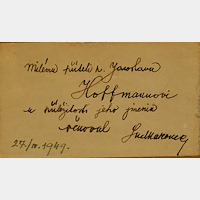 Milému příteli p. Jaroslavu
Hoffmannovi
u příležitosti jeho jmenin
věnoval
27/IV. 1949.